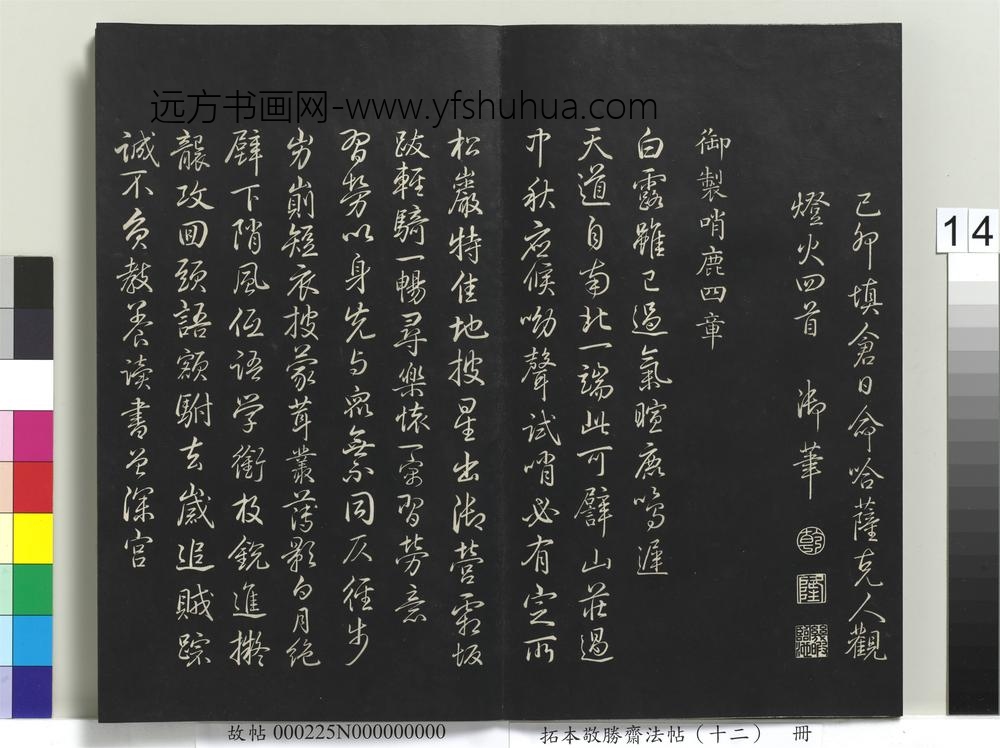 远方书画网-www.yfshuhua.com
己卯填倉日命哈薩克人觀
燈火四首 御筆
乾
隆
御製哨鹿四章
白露雖已過氣暄鹿鳴遲
天道自南北一端此可譬山莊過
中秋应候呦聲試哨必有定所
松巖特佳地披星出御营霜坂
跋輕騎一暢尋樂懷一寓習勞意
習勞以身先与眾無同仄徑步
屴崱短衣披蒙茸叢薄影白月絶
壁下陗風伍语学銜枚銳進擬
襲攻回頭語額駙去歲追賊踪
誠不负教养读書曾深宫
14
故帖 000225N000000000
拓本敬勝齋法帖（十二） 冊